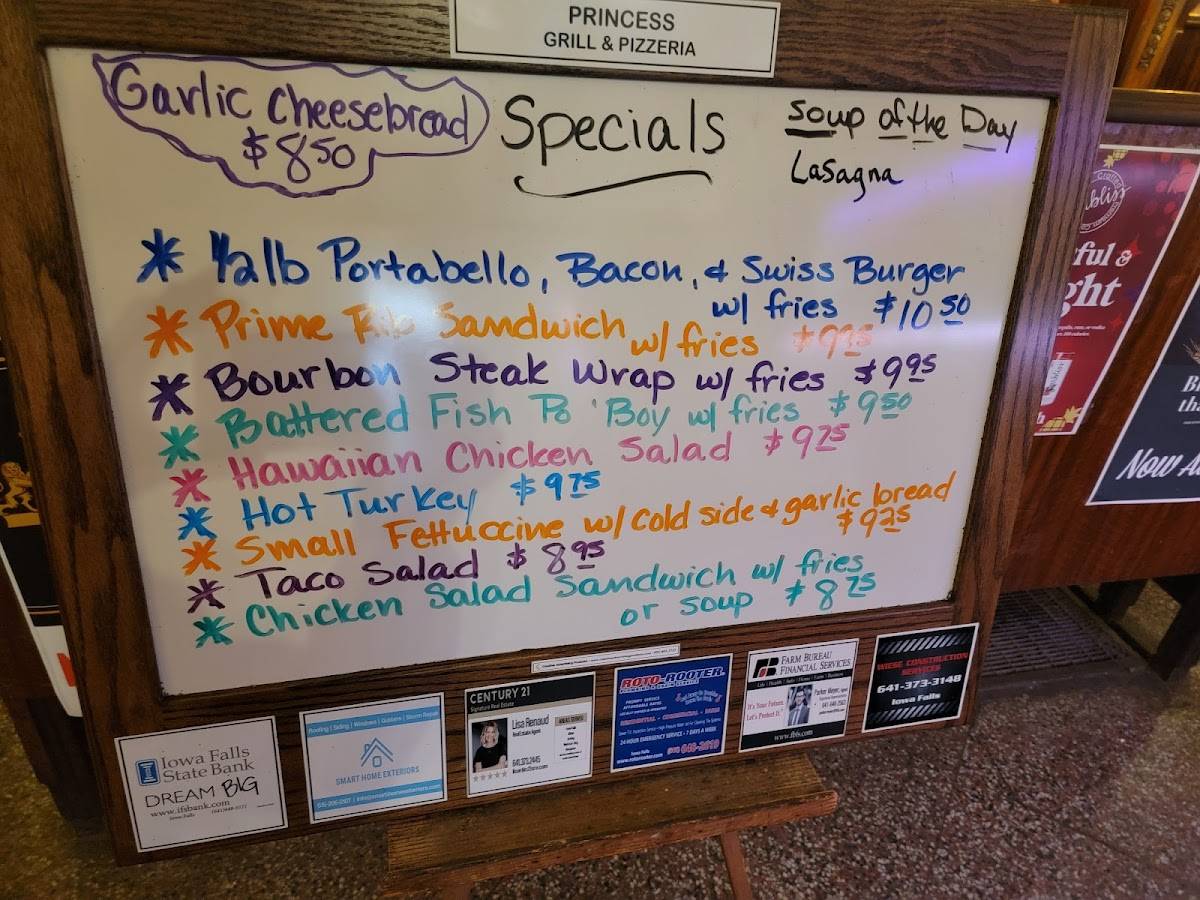 PRINCESS
GRILL & PIZZERIA
Garlic Cheesebread
$850
Specials
Soup of the Day
Lasagna
* 1/2 lb Portabello, Bacon, & Swiss Burger
w/ fries $10 50
* Prime Rib Sandwich w/ fries $9 95
* Bourbon Steak Wrap w/ fries $9 95
* Battered Fish Po 'Boy w/ fries $9 50
* Hawaiian Chicken Salad $9 25
* Hot Turkey $9 75
* Small Fettuccine w/ cold side & garlic bread
$9 25
* Taco Salad $8 95
* Chicken Salad Sandwich w/ fries
or soup $8 75
Iowa Falls
State Bank
DREAM BIG
www.ifsbank.com
Iowa Falls
Roofing | Siding | Windows | Gutters | Storm Repair
SMART HOME EXTERIORS
CENTURY 21
Signature Real Estate
Lisa Renaud
Real Estate Agent
641.373.2445
ROTO-ROOTER
RESIDENTIAL - COMMERCIAL - FARM
24 HOUR EMERGENCY SERVICE - 7 DAYS A WEEK
Iowa Falls
www.rotorooter.com
FARM BUREAU
FINANCIAL SERVICES
It's Your Future.
Let's Protect It.
Parker Meyer
www.fbfs.com
WIESE CONSTRUCTION
SERVICES
641-373-3148
Iowa Falls
bliss
ful &
ght
Now A